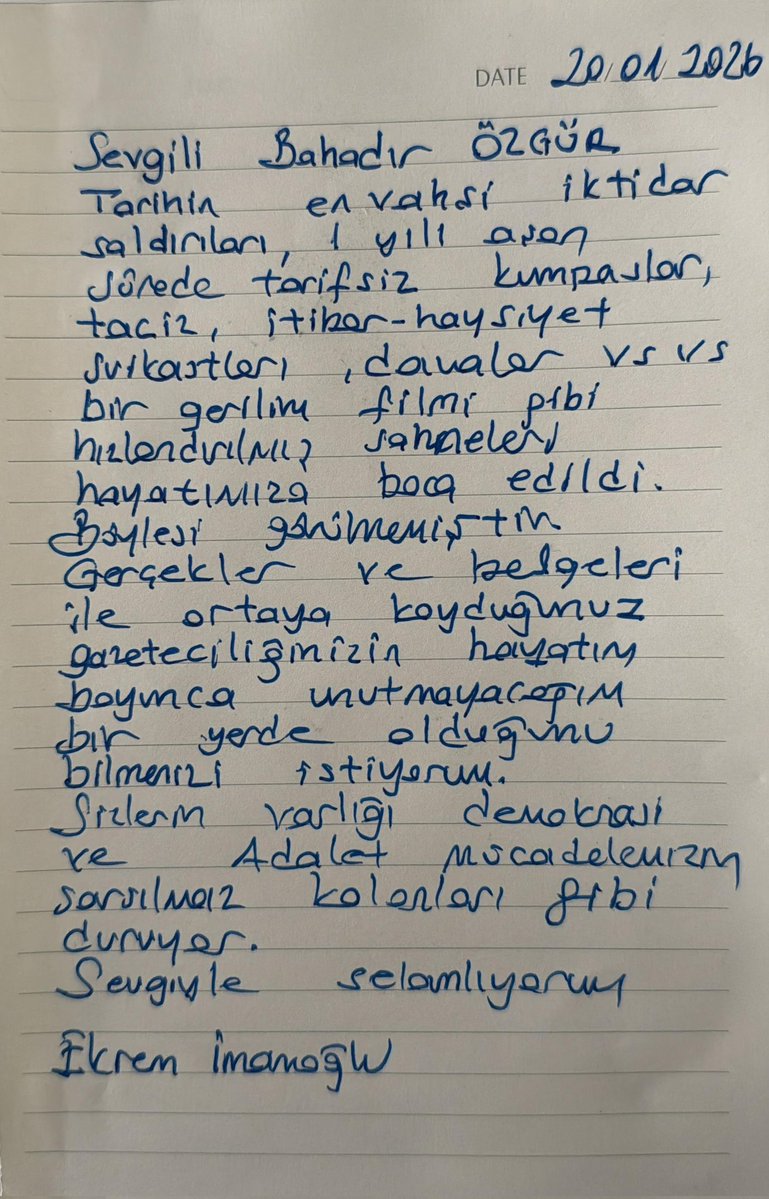 DATE 20/01/2026
Sevgili Bahadır ÖZGÜR
Tarihin en vahşi iktidar
saldırıları, 1 yılı aşan
sürede tarifsiz kumpaslar,
taciz, itibar-haysiyet
suikastleri, davalar vs vs
bir gerilim filmi gibi
hızlandırılmış sahneleri
hayatımıza boca edildi.
Böylesi görülmemiştir
Gerçekler ve belgeleri
ile ortaya koyduğunuz
gazeteciliğinizin hayatım
boyunca unutmayacağım
bir yerde olduğunu
bilmenizi istiyorum.
Sizlerin varlığı demokrasi
ve Adalet mücadelemizin
sarsılmaz kolonları gibi
duruyor.
Sevgiyle selamlıyorum
Ekrem İmamoğlu